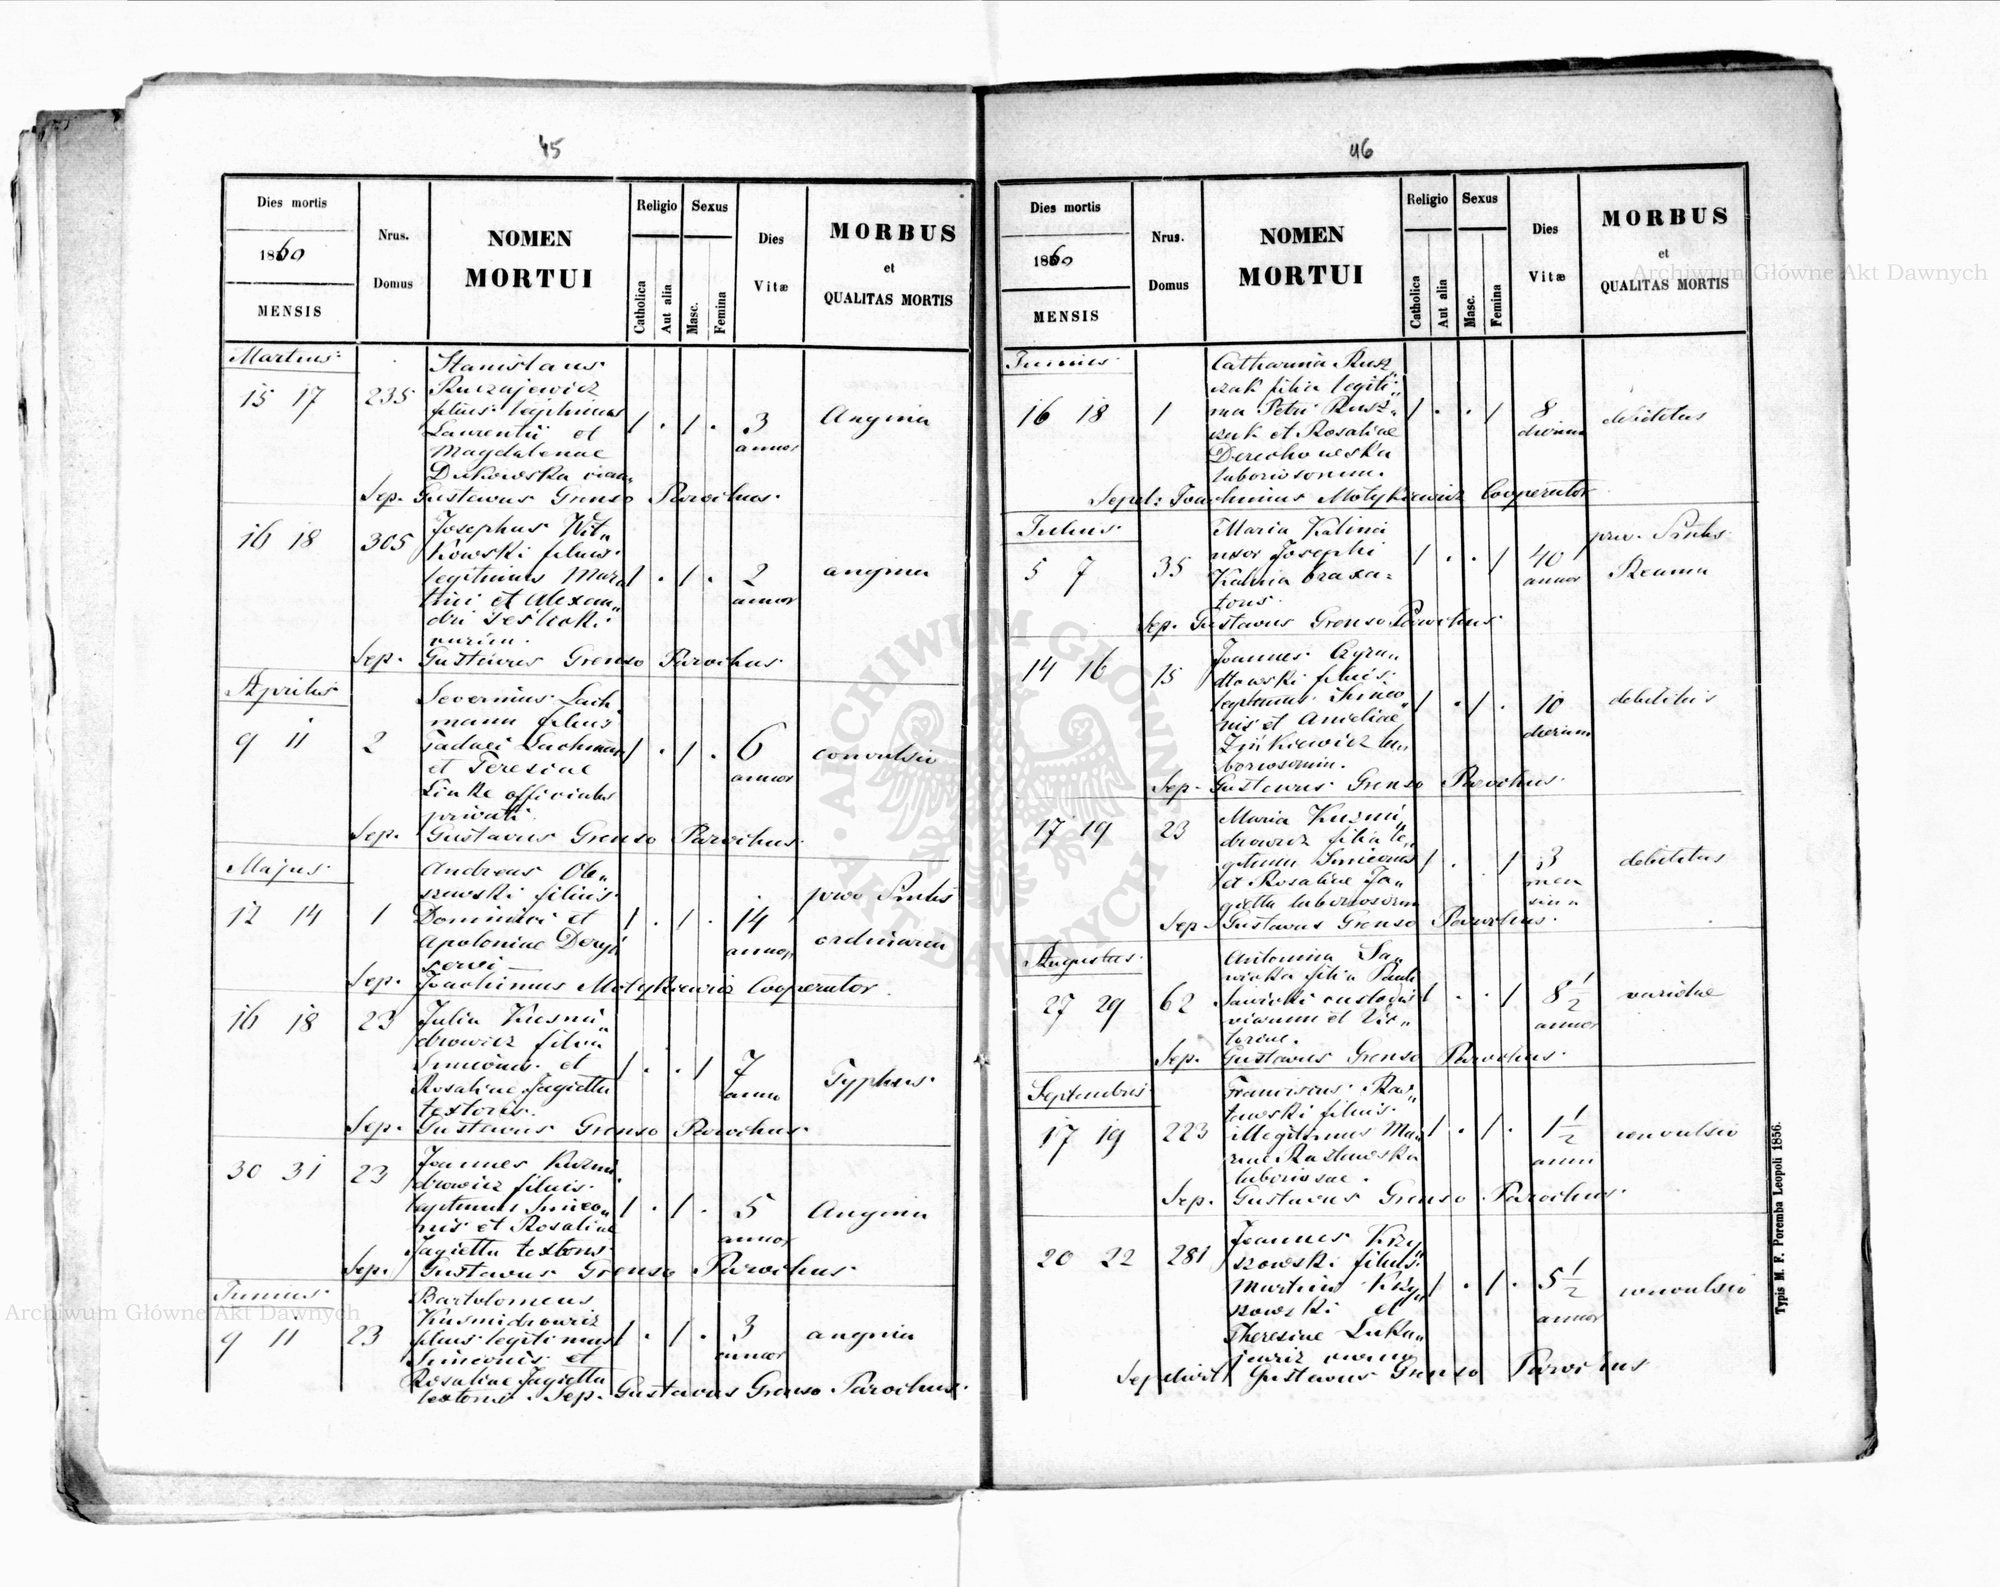 45
Dies mortis
1860
MENSIS
Nrus.
Domus
NOMEN
MORTUI
Religio
Catholica
Aut alia
Sexus
Masc.
Femina
Dies
Vitæ
MORBUS
et
QUALITAS MORTIS
Martius
Stanislaus
15 17 235
filius legitimus 1 . 1 . 3 Angina
Laurentii et annor
Magdalenae
Sep. Gustavus Grenso Parochus.
16 18 305 Josephus Wit„
kowski filius
legitimus Mar„ 1 . 1 . 2 angina
tini et Alexan„ annor
Sep. Gustavus Grenso Parochus
Aprilis Severinus Lach„
mann filius
9 11 2 Tadaei Lachmann 1 . 1 . 6 convulsio
et Teresiae annor
Linke officialis
privati
Sep. Gustavus Grenso Parochus.
Majus Andreas Ol„
szewski filius
12 14 1 Dominici et 1 . 1 . 14
Apoloniae annor ordinaria
servi
Sep. Joachimus Motykiewicz Cooperator.
16 18 23 Julia Kusmi„
drowicz filia
Simeonis et 1 . . 1 7 Typhus
Rosaliae Jagiełła
textoris.
Sep. Gustavus Grenso Parochus.
30 31 23 Joannes Kuzmi„
drowicz filius
legitimus Simeo„ 1 . 1 . 5 Angina
nis et Rosaliae annor
Jagiełła textoris
Sep. Gustavus Grenso Parochus
Junius Bartolomeus
Kusmidrowicz
9 11 23 filius legitimus 1 . 1 . 3 angina
Simeonis et annor
Rosaliae Jagiełła
textoris. Sep. Gustavus Grenso Parochus.
46
Dies mortis
1860
MENSIS
Nrus.
Domus
NOMEN
MORTUI
Religio
Catholica
Aut alia
Sexus
Masc.
Femina
Dies
Vitæ
MORBUS
et
QUALITAS MORTIS
Junius Catharina Rusz„
czak filia legiti„
16 18 1 ma Petri Rusz„ 1 . . 1 8 debilitas
czak et Rosaliae dierum
Derechowska
laboriosorum.
Sepel: Joachimus Motykiewicz Cooperator
Julius Maria Kalinia
uxor Josephi
5 7 35 Kalinia braxa= 1 . . 1 40
toris annor
Sep. Gustavus Grenso Parochus
14 16 15 Joannes
filius
legitimus Simeo„ 1 . 1 . 10 debilitas
nis et Ameliae dierum
Zinkiewicz la„
boriosorum.
Sep. Gustavus Grenso Parochus.
17 19 23 Maria Kuzmi„
drowicz filia le„
gitima Simeonis 1 . . 1 3 debilitas
et Rosaliae Ja„ men
giełła laboriosorum sium
Sep. Gustavus Grenso Parochus.
Augustus Antonina Sa„
wicka filia Pauli
27 29 62 Sawicki custodis 1 . . 1 8 1/2 variolae
viarum et Vic„ annor
toriae.
Sep. Gustavus Grenso Parochus.
Septembris Franciscus
filius
17 19 223 illegitimus Ma„ 1 . 1 . 1 1/2 convulsio
anni
laboriosae.
Sep. Gustavus Grenso Parochus.
20 22 281 Joannes Krzy„
szowski filius
Martini Krzy„ 1 . 1 . 5 1/2 convulsio
szowski et annor
Theresiae
Sepelivit Gustavus Grenso Parochus
Typis M. F. Poremba Leopoli 1856.
Archiwum Główne Akt Dawnych
Archiwum Główne Akt Dawnych
ARCHIWUM GŁÓWNE AKT DAWNYCH